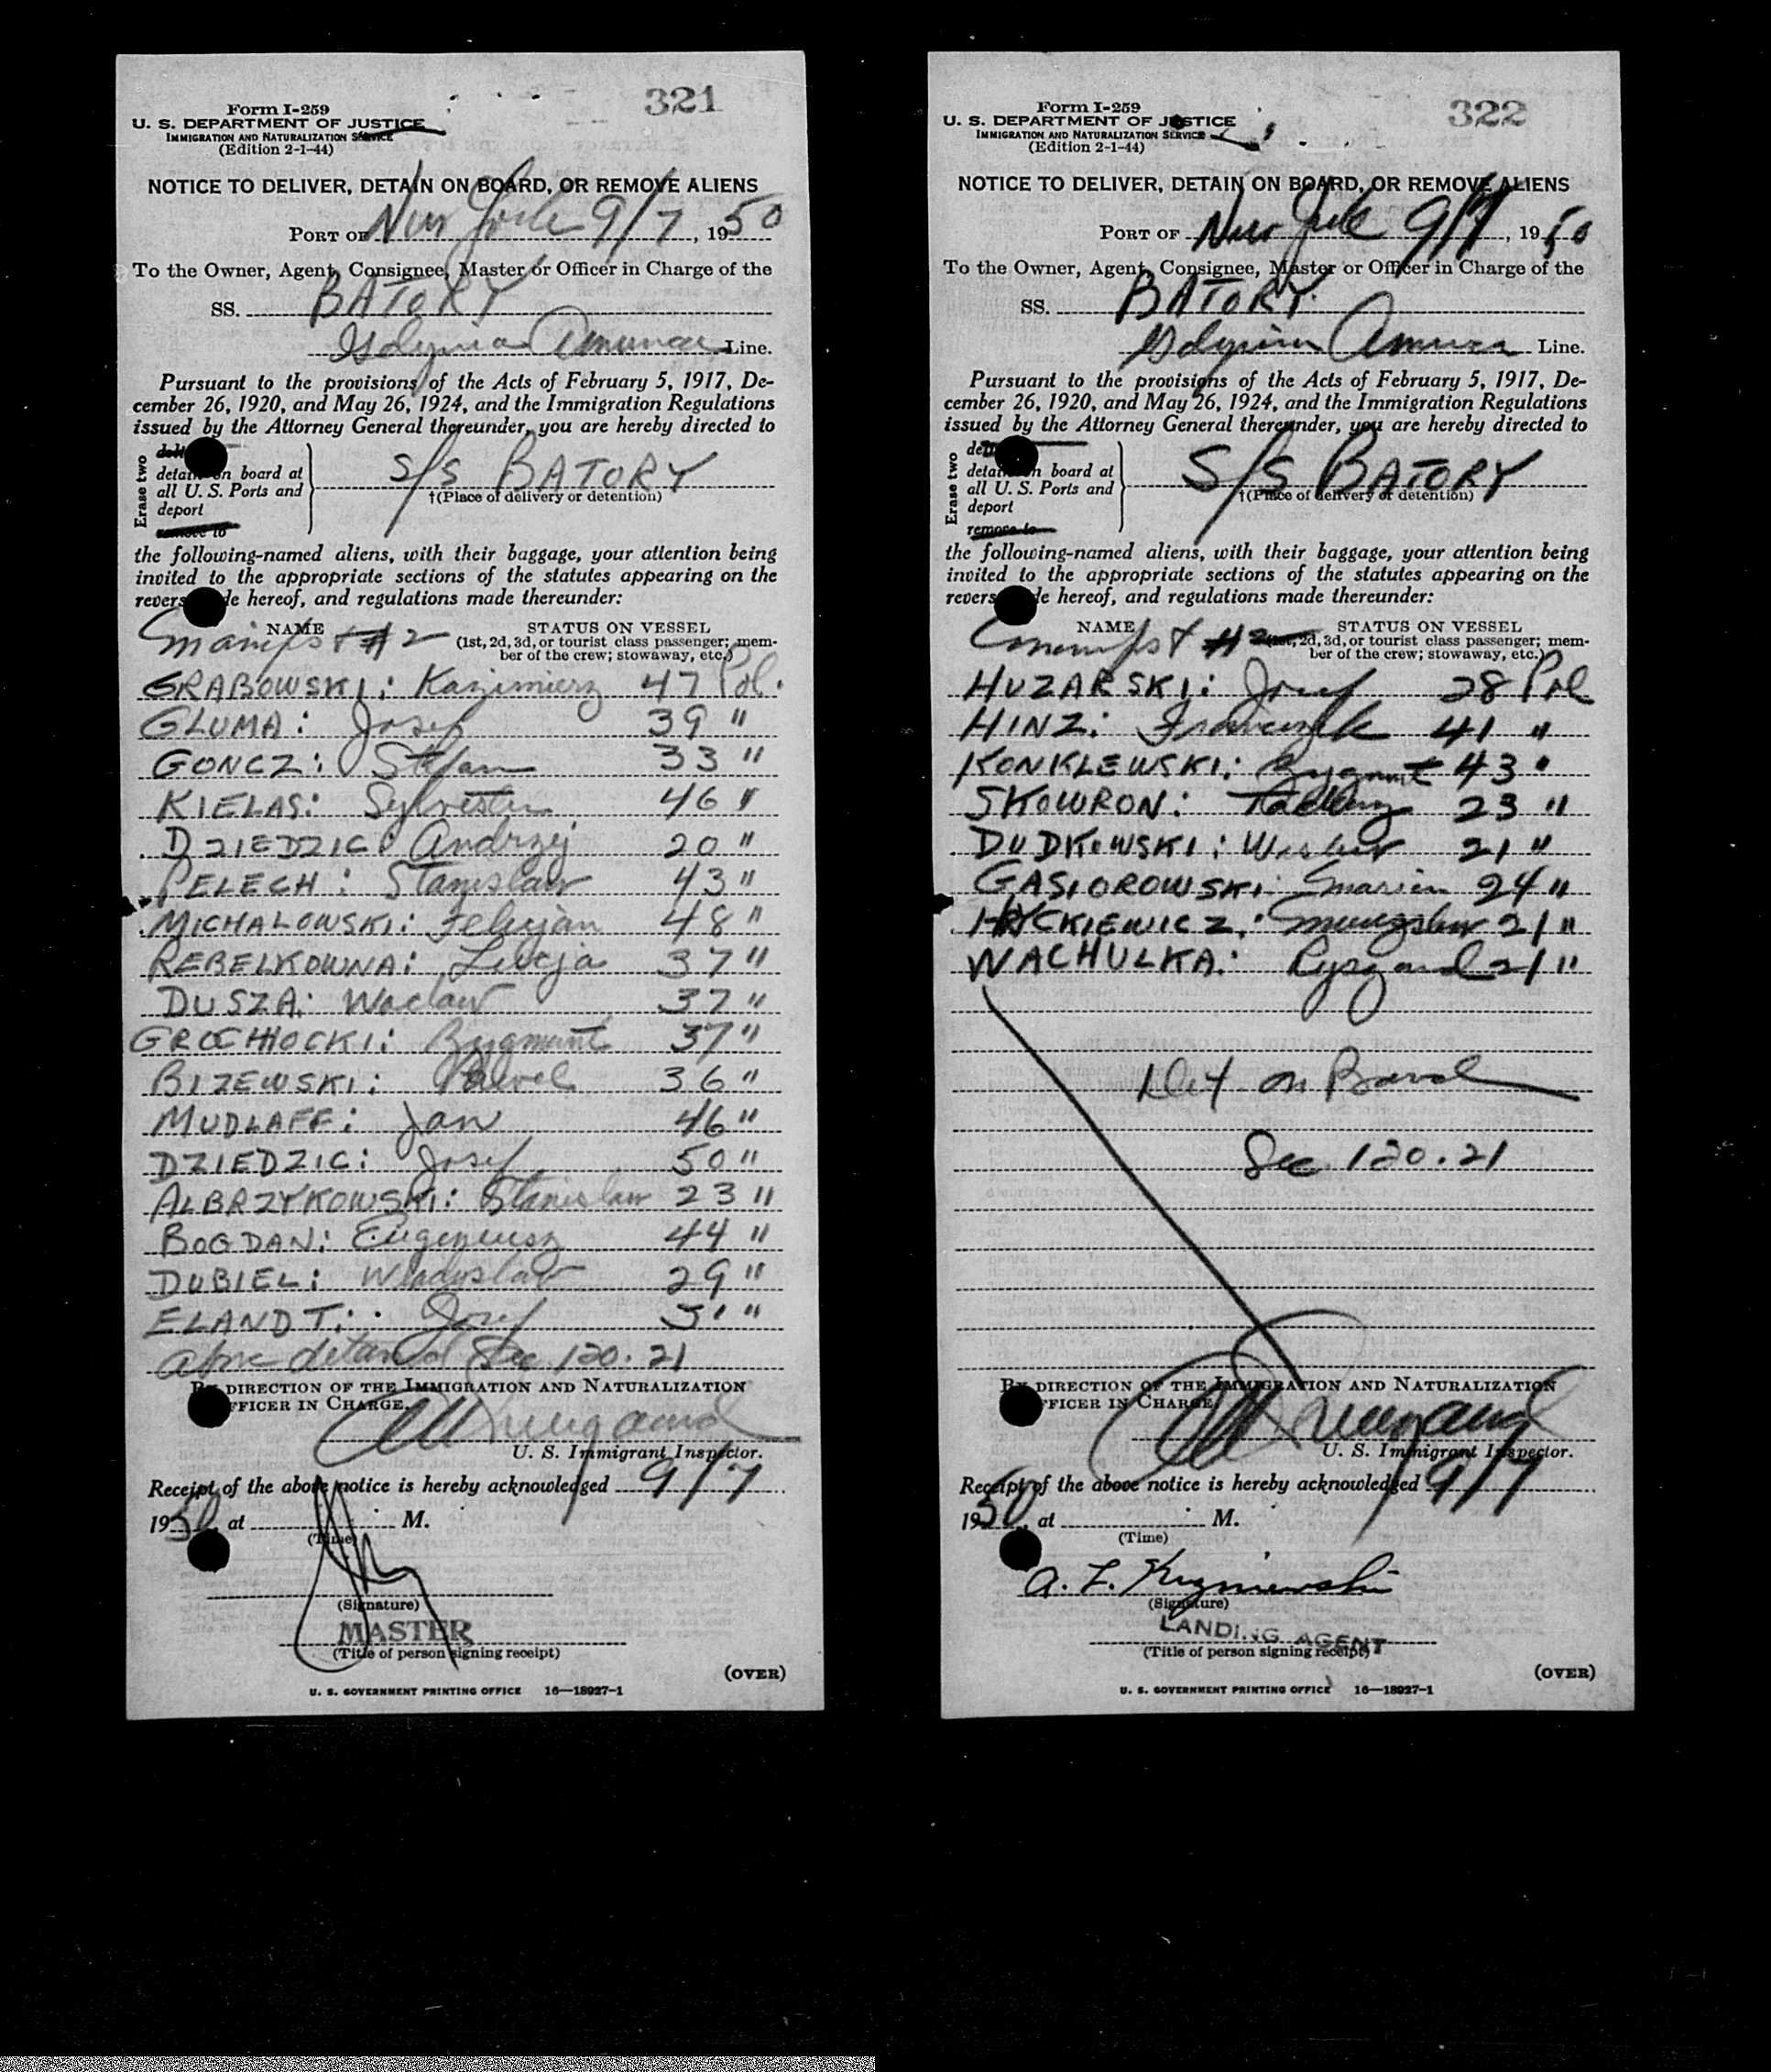 321
Form I-259
U. S. DEPARTMENT OF JUSTICE
IMMIGRATION AND NATURALIZATION SERVICE
(Edition 2-1-44)
NOTICE TO DELIVER, DETAIN ON BOARD, OR REMOVE ALIENS
PORT OF New York 9/7, 1950
To the Owner, Agent, Consignee, Master or Officer in Charge of the
SS. BATORY
Gdynia America Line.
Pursuant to the provisions of the Acts of February 5, 1917, De-
cember 26, 1920, and May 26, 1924, and the Immigration Regulations
issued by the Attorney General thereunder, you are hereby directed to
Erase two
detain on board at
all U. S. Ports and
deport
remove to
S/S BATORY
†(Place of delivery or detention)
the following-named aliens, with their baggage, your attention being
invited to the appropriate sections of the statutes appearing on the
reverse side hereof, and regulations made thereunder:
NAME STATUS ON VESSEL
#2 (1st, 2d, 3d, or tourist class passenger; mem-
ber of the crew; stowaway, etc.)
GRABOWSKI: Kazimierz 47 Pol.
GLUMA: Josef 39 "
GONCZ: Stefan 33 "
KIELAS: Sylvester 46 "
DZIEDZIC: Andrzej 20 "
PELECH: Stanislaw 43 "
MICHALOWSKI: Felicjan 48 "
REBELKOWNA: Lucja 37 "
DUSZA: Waclaw 37 "
GROCHHOCKI: Zygmunt 37 "
BIZEWSKI: Pawel 36 "
MUDLAFF: Jan 46 "
DZIEDZIC: Josef 50 "
ALBRZYKOWSKI: Stanislaw 23 "
BOGDAN: Eugeniusz 44 "
DUBIEL: Wladyslaw 29 "
ELANDT: Josef 31 "
above detained Sec 120.21
BY DIRECTION OF THE IMMIGRATION AND NATURALIZATION
OFFICER IN CHARGE.
U. S. Immigrant Inspector.
Receipt of the above notice is hereby acknowledged 9/7
1950, at M.
(Time)
(Signature)
MASTER
(Title of person signing receipt)
(OVER)
U. S. GOVERNMENT PRINTING OFFICE 16—18927-1
322
Form I-259
U. S. DEPARTMENT OF JUSTICE
IMMIGRATION AND NATURALIZATION SERVICE
(Edition 2-1-44)
NOTICE TO DELIVER, DETAIN ON BOARD, OR REMOVE ALIENS
PORT OF New York 9/7, 1950
To the Owner, Agent, Consignee, Master or Officer in Charge of the
SS. BATORY
Gdynia America Line.
Pursuant to the provisions of the Acts of February 5, 1917, De-
cember 26, 1920, and May 26, 1924, and the Immigration Regulations
issued by the Attorney General thereunder, you are hereby directed to
Erase two
detain on board at
all U. S. Ports and
deport
remove to
S/S BATORY
†(Place of delivery or detention)
the following-named aliens, with their baggage, your attention being
invited to the appropriate sections of the statutes appearing on the
reverse side hereof, and regulations made thereunder:
NAME STATUS ON VESSEL
#2 (1st, 2d, 3d, or tourist class passenger; mem-
ber of the crew; stowaway, etc.)
HUZARSKI: Josef 28 Pol
HINZ: Franciszek 41 "
KONKLEWSKI: Zygmunt 43 "
SKOWRON: Tadeusz 23 "
DUDKOWSKI: Weslaw 21 "
GASIOROWSKI: Marian 24 "
HRYCKIEWICZ: 21 "
WACHULKA: Ryszard 21 "
Det on Board
Sec 120.21
BY DIRECTION OF THE IMMIGRATION AND NATURALIZATION
OFFICER IN CHARGE
U. S. Immigrant Inspector.
Receipt of the above notice is hereby acknowledged 9/7
1950, at M.
(Time)
(Signature)
LANDING AGENT
(Title of person signing receipt)
(OVER)
U. S. GOVERNMENT PRINTING OFFICE 16—18927-1